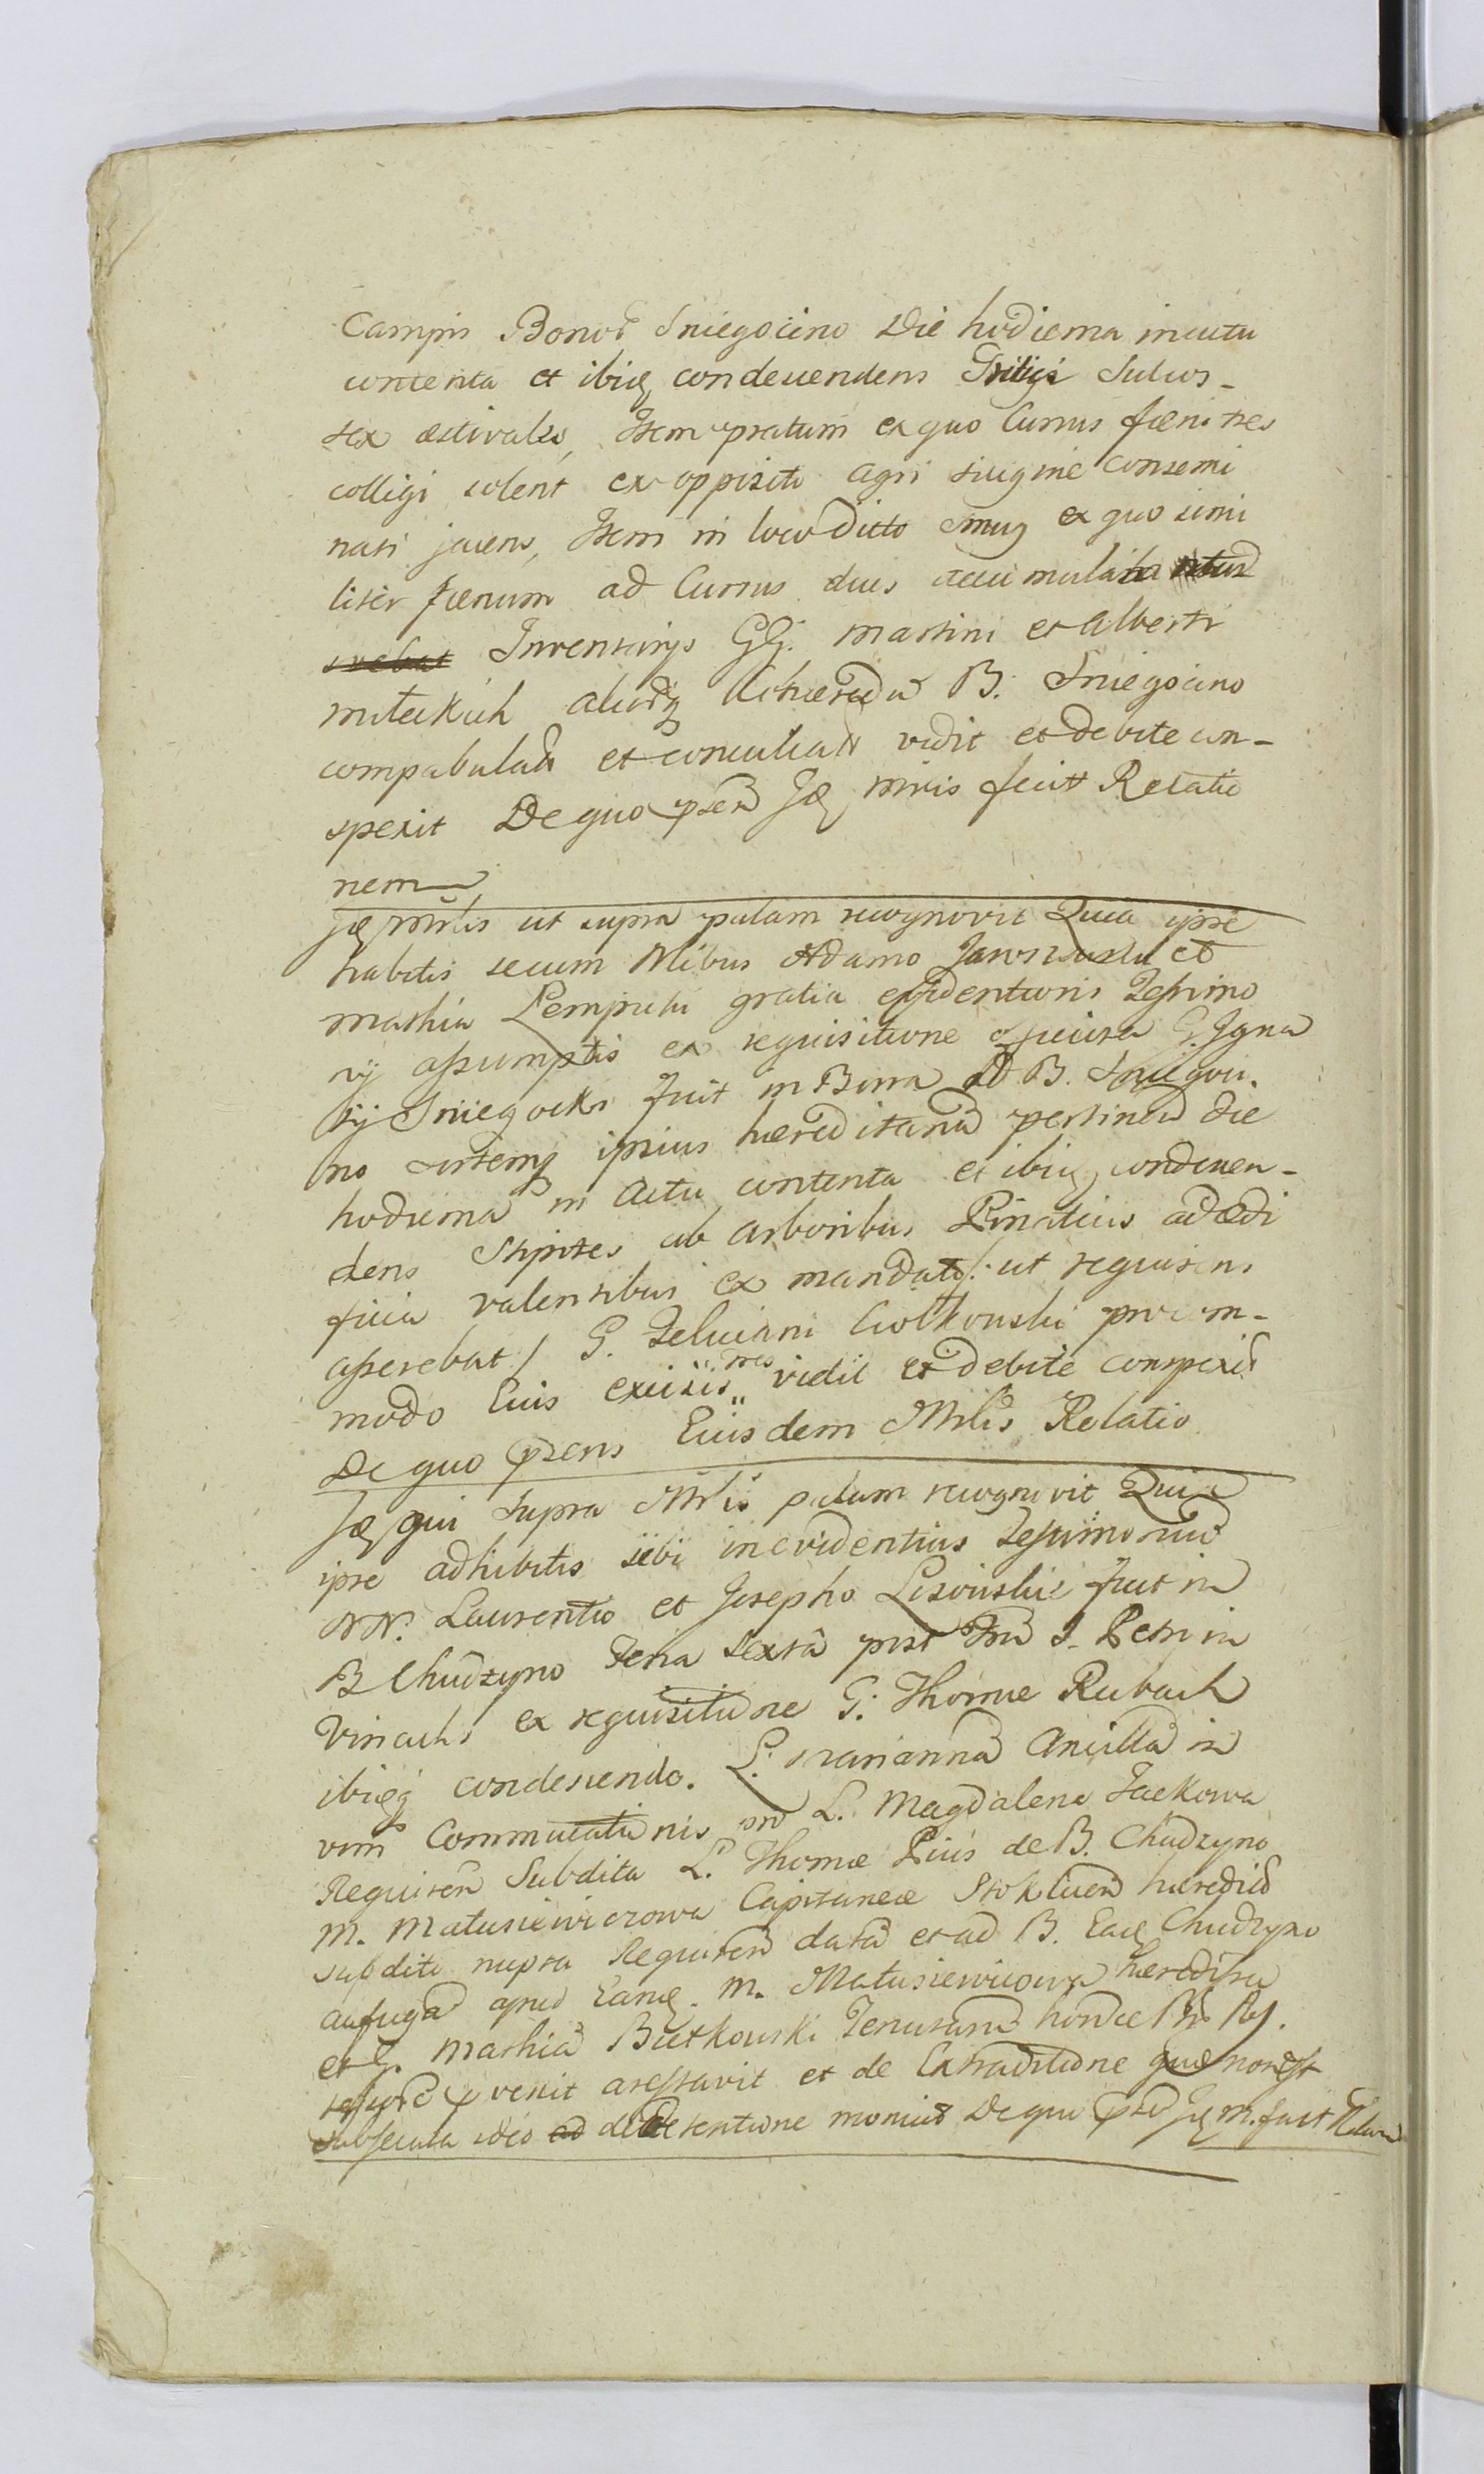 Campis Bonor Sniegocino Die hodierna in actu
contenta et ibiq condescendens Tritici Sulcos-
sex æstivales, Item pratum ex quo Currus fæni tres
colligi solent ex opposito agri siligine consemi
nati jacens, Item in loco dicto Smug ex quo simi
liter fænum ad Currus duos accumula
Inventarijs GG. Martini et Alberti
Miłeckich aliorq Cohæredu B. Sniegocino
compabulata et conculcata vidit et debite con-
spexit De quo psen Jq Mnris fecit Relatio
nem
Jq Mnrlis ut supra palam recognovit Quia ipse
habitis secum Nlibus Adamo et
Mathia Lempicki gratia evidentioris Testimo
nij assumptis ex requisitione G. Igna
tij Sniegocki fuit in Bona ad B. Sniegoci-
no sortemq ipsius hæreditaria pertinen die
hodierna in Actu contenta et ibiq condescen-
dens Stipites ab arboribus Pinaticis ad ædi
ficia valentibus ex mandato /: ut requirens
asserebat / G. Feliciani Ciołkowski pro com-
modo Eius excisis tres vidit et debite conspexit
De quo psens Eiusdem Mnrlis Relatio
Jq qui supra Mnrlis palam recognovit Quia
ipse adhibitis sibi in evidentius Testimoniu
NN. Laurentio et Josepho Lisowskie fuit in
B Chudzyno Feria Sexta post Fm S. Petri in
Vinculis ex requisitione G. Thomæ Rubach
ibiqq condescendo. L. Mariannã Ancillã in
vim Commutationis pro L. Magdalena Jackowa
Requiren Subdita L. Thomæ Pius de B. Chudzyno
M. Matusiewiczowa Capitaneæ Stokliscen hæredis
subditi nupta Requiren datã et ad B. Eadq Chudzyno
aufugã apud Eamq. M. Matusiewiczowa hæredissa
et G. Mathiã Bietkowski Tenutariu horuce
venit arestavit et de Extraditione quæ non est
subsecuta ideo ad de detentione monuit De quo psen Jq M. fecit Relaonem